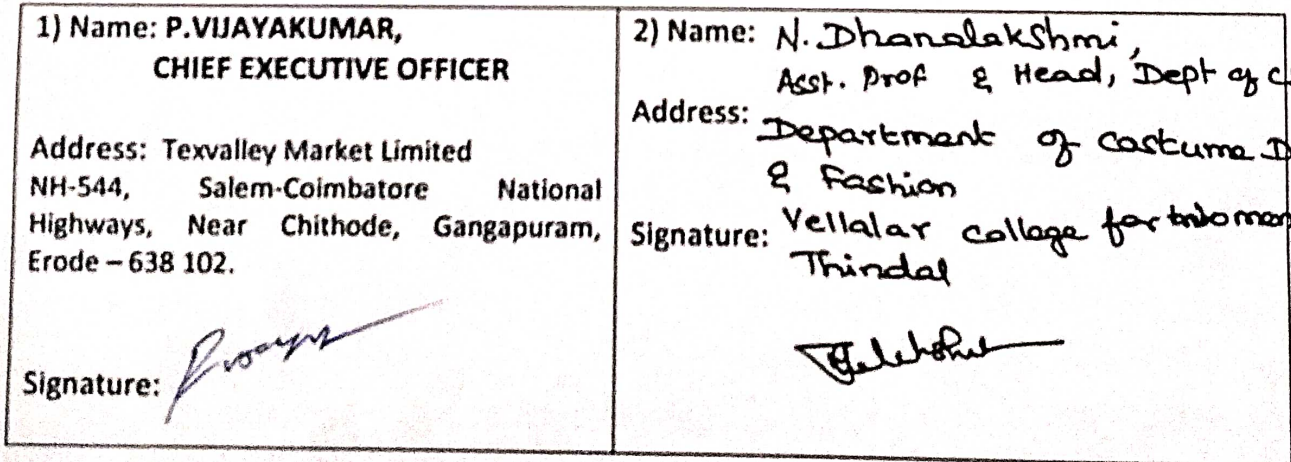 1) Name: P.VIJAYAKUMAR,
CHIEF EXECUTIVE OFFICER
Address: Texvalley Market Limited
NH-544, Salem-Coimbatore National
Highways, Near Chithode, Gangapuram,
Erode – 638 102.
Signature:
2) Name: N. Dhanalakshmi,
Asst. Prof & Head, Dept of
Address: Department of Costume D
& Fashion
Signature: Vellalar College for Women
Thindal